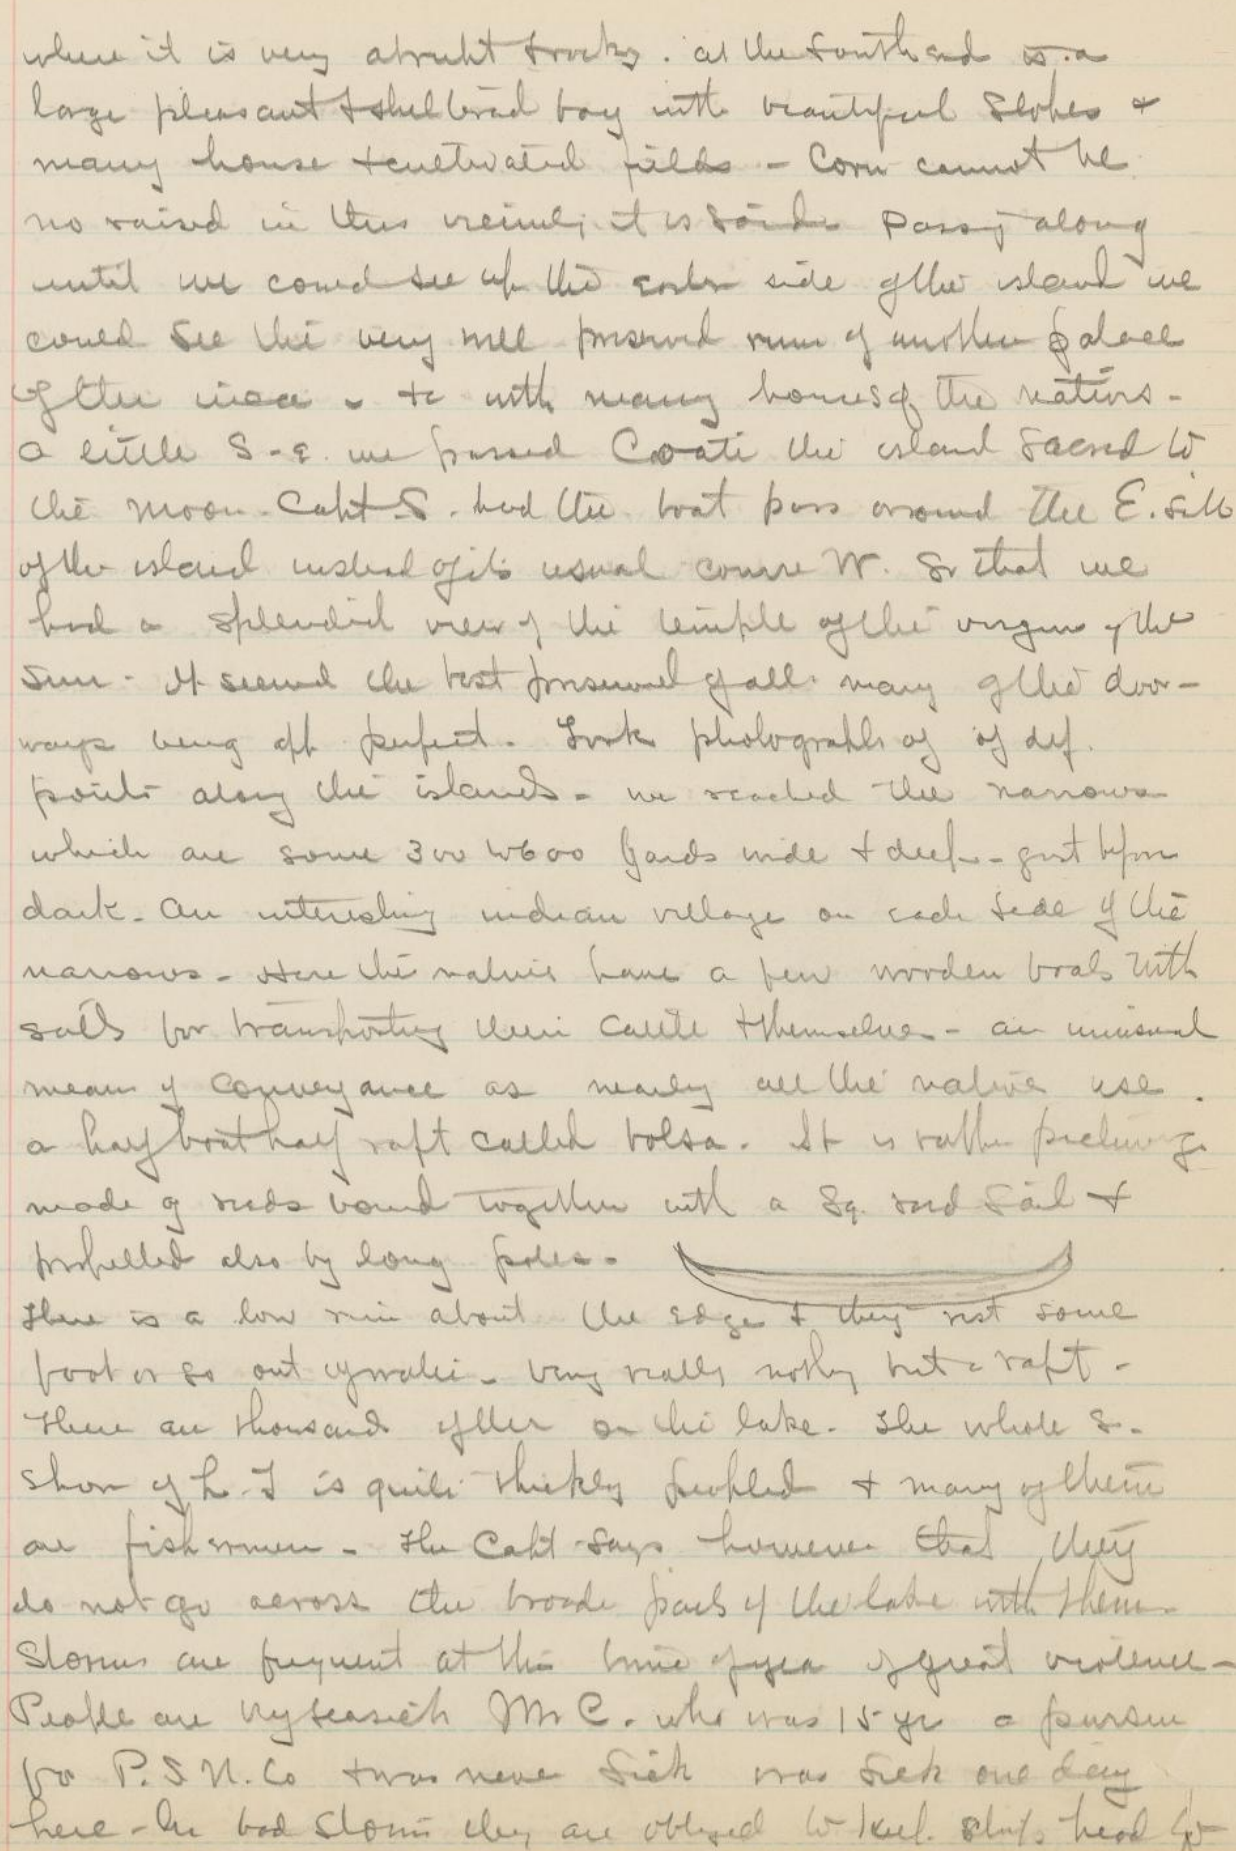 where it is very abrupt & rocky. at the South end is a
large pleasant & sheltered bay with beautiful Slopes &
many house & cultivated fields - Corn cannot be
no raised in this it is said. Passg along
until we could see up the side of the island we
could See the very well preserved ruin of another palace
of the inca - &c with many homes of the natives -
a little S-E. we passed Coati the island Sacred to
the moon - Capt S. had the boat pass around the E. side
of the island instead of its usual course W. So that we
had a splendid view of the temple of the virgins of the
Sun - It seemed the best preserved of all. many of the door-
ways being perfect. Took photographs of of dif.
points along the islands - we reached the narrows
which are some 300 to 600 yards wide & deep - just before
dark - An interesting indian village on each side of the
narrows - Here the natives have a few wooden boats with
sails for transporting their cattle & themselves - an unusual
means of conveyance as nearly all the native use
a half boat half raft called bolsa. It is rather
made of reeds bound together with a Sq. reed Sail &
propelled also by long poles -
There is a low rim about the edge & they rest some
foot or so out of water - being really nothg but a raft -
There are thousands of them on the lake. The whole S.
Shore of L. T is quite thickly peopled & many of them
are fishermen - The Capt says however that they
do not go across the broader parts of the lake with them -
Storms are frequent at this time of year of great violence -
People are very seasick Mr C. who was 15 yr a purser
for P.S.N. Co & was never Sick was Sick one day
here - In bad Storms they are obliged to keep ships head